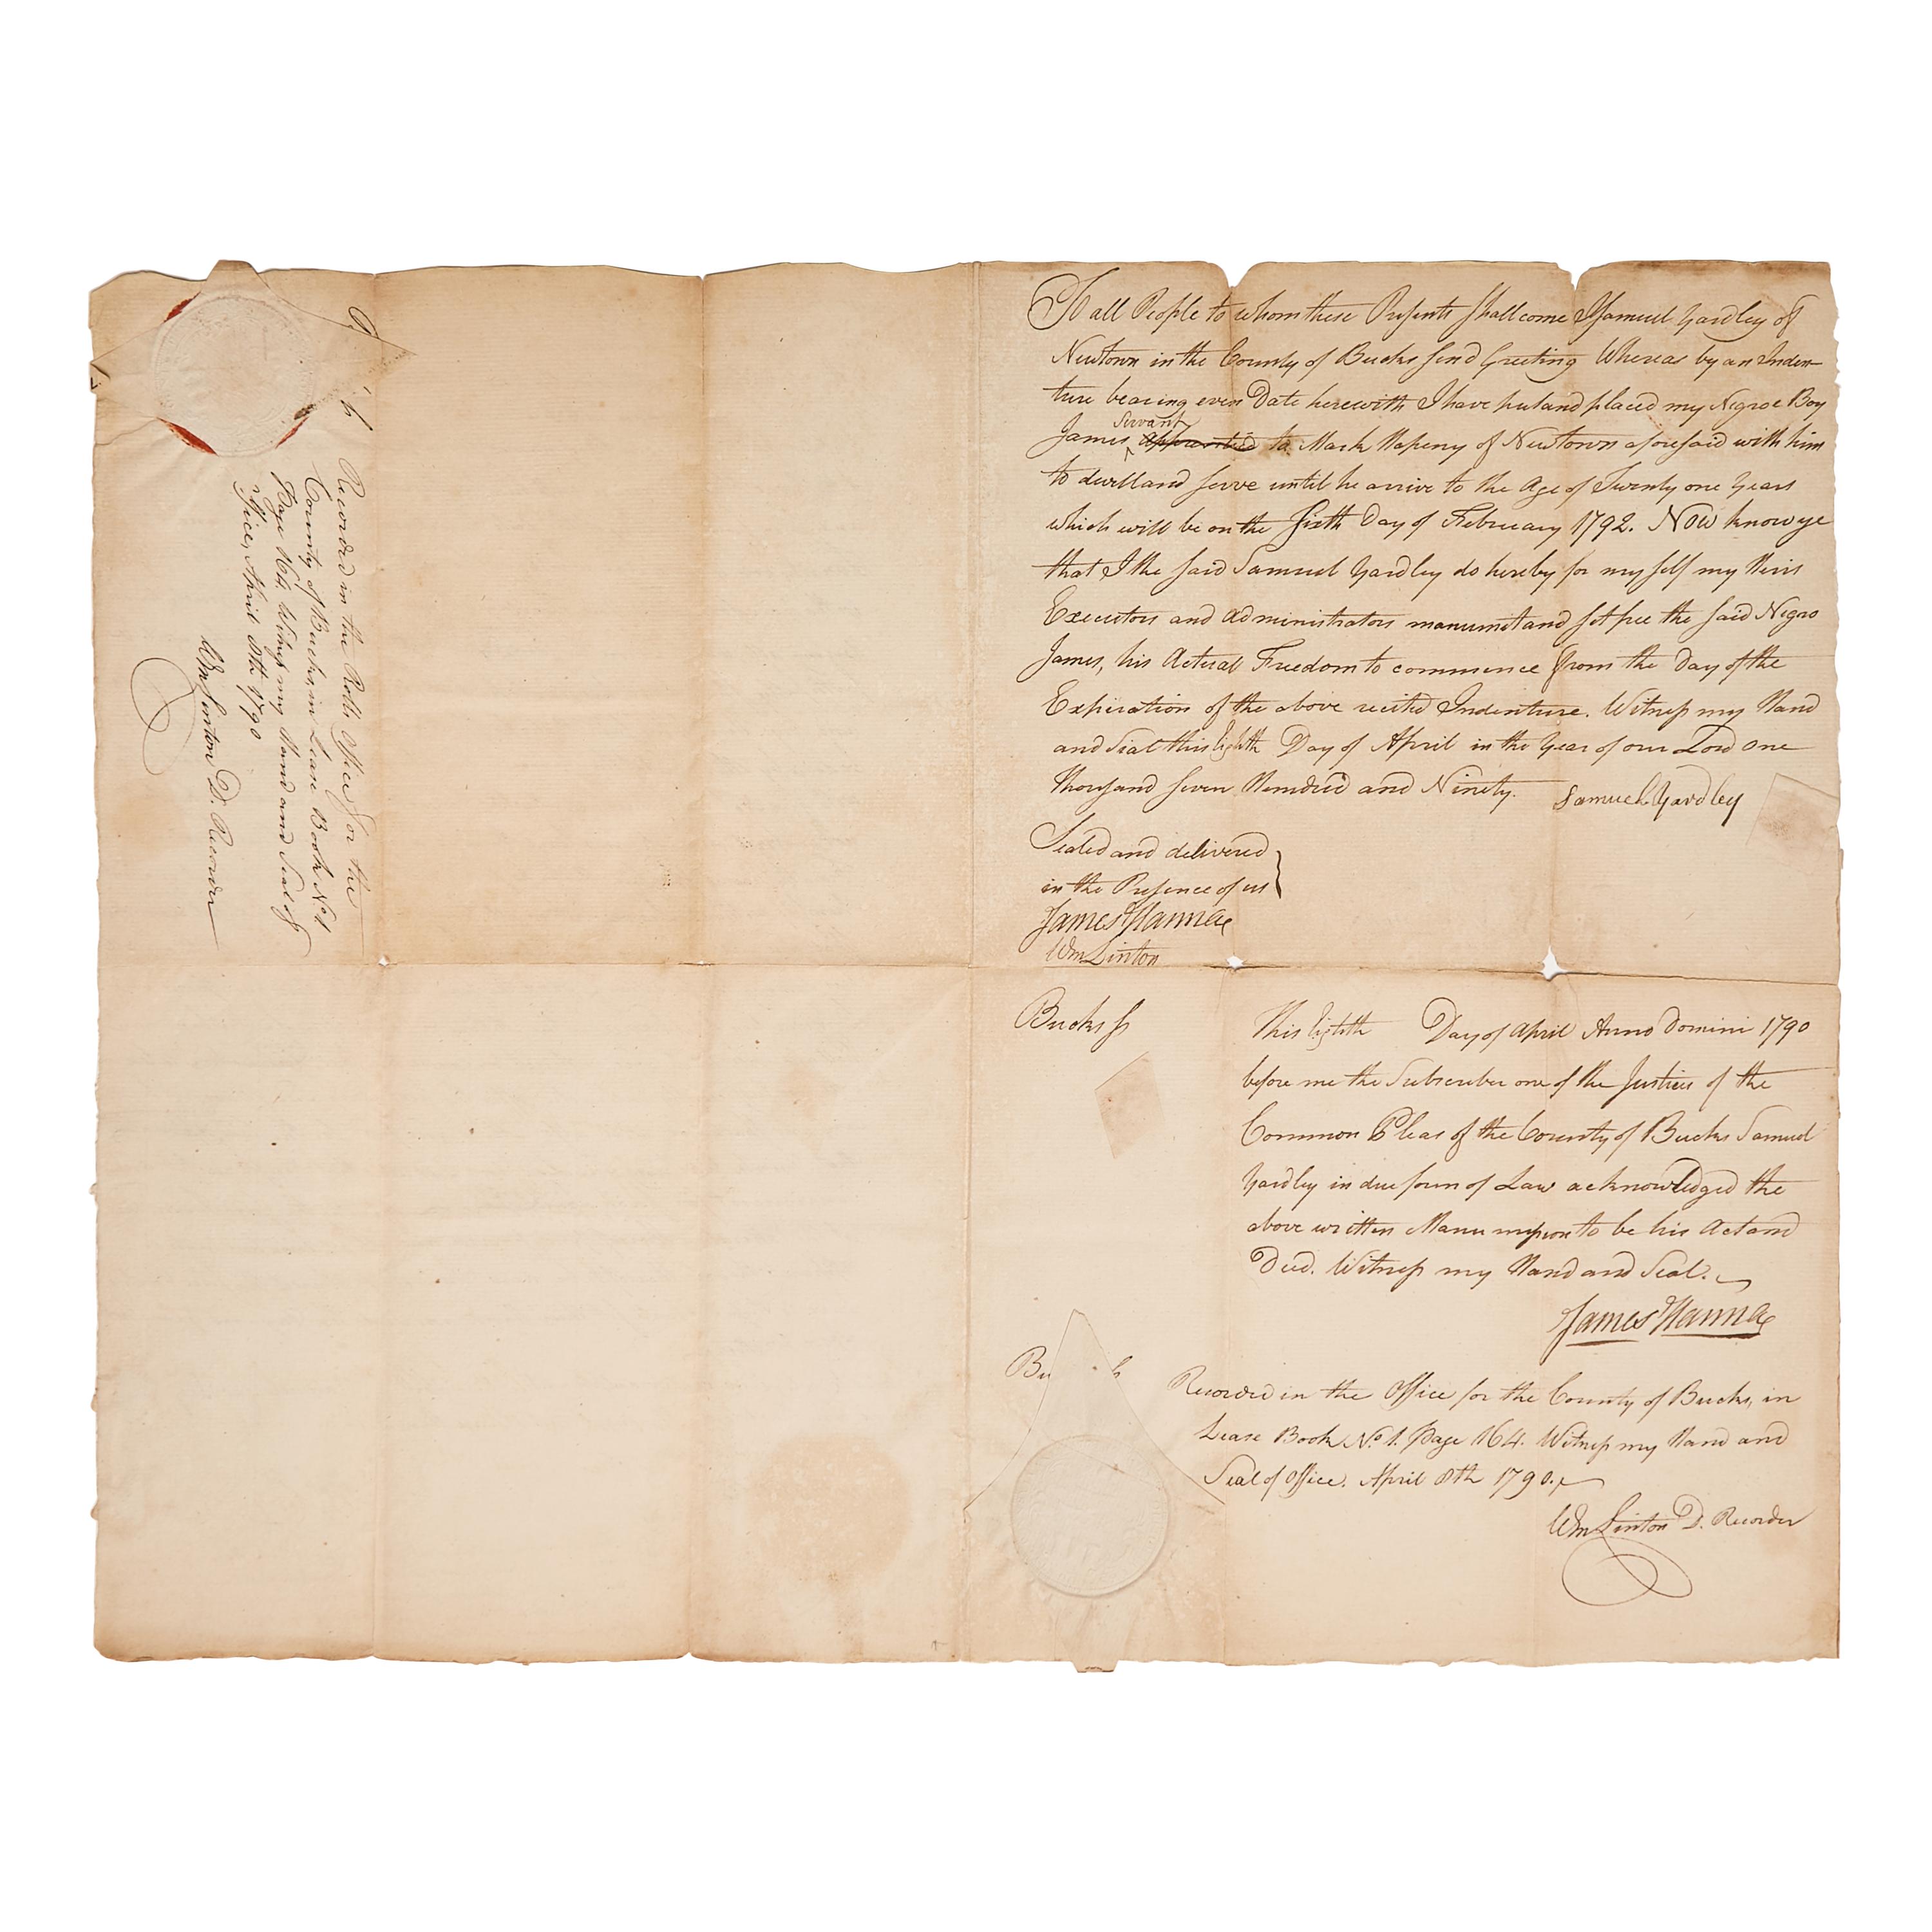 To all People to whom these Presents shall come I Samuel Yardley of
Newtown in the County of Bucks send Greeting Whereas by an Inden-
ture bearing even Date herewith I have put and placed my Negroe Boy
Servant
James ^ apprentice to Mark Hapeny of Newtown aforesaid with him
to dwell and serve until he arrive to the Age of Twenty one Years
which will be on the sixth Day of February 1792. NOW know ye
that I the said Samuel Yardley do hereby for my self my Heirs
Executors and Administrators manumit and set free the said Negro
James, his Actual Freedom to commence from the Day of the
Expiration of the above recited Indenture. Witness my Hand
and Seal this Eighth Day of April in the Year of our Lord One
thousand seven Hundred and Ninety.
Samuel Yardley
Sealed and delivered
in the Presence of us
James Hanna
Wm Linton
Bucks ss
This Eighth Day of April Anno Domini 1790
before me the Subscriber one of the Justices of the
Common Pleas of the County of Bucks Samuel
Yardley in due form of Law acknowledged the
above written Manumission to be his Act and
Deed. Witness my Hand and Seal.
James Hanna
Bu
Recorded in the Office for the County of Bucks, in
Lease Book No. 1. Page 164. Witness my Hand and
Seal of Office. April 8th 1790.
Wm Linton D. Recorder
Recorded in the Rolls Office for the
County of Bucks, in Lease Book No. 1
Page 164. Witness my Hand and Seal of
Office, April 8th 1790
Wm Linton D. Recorder